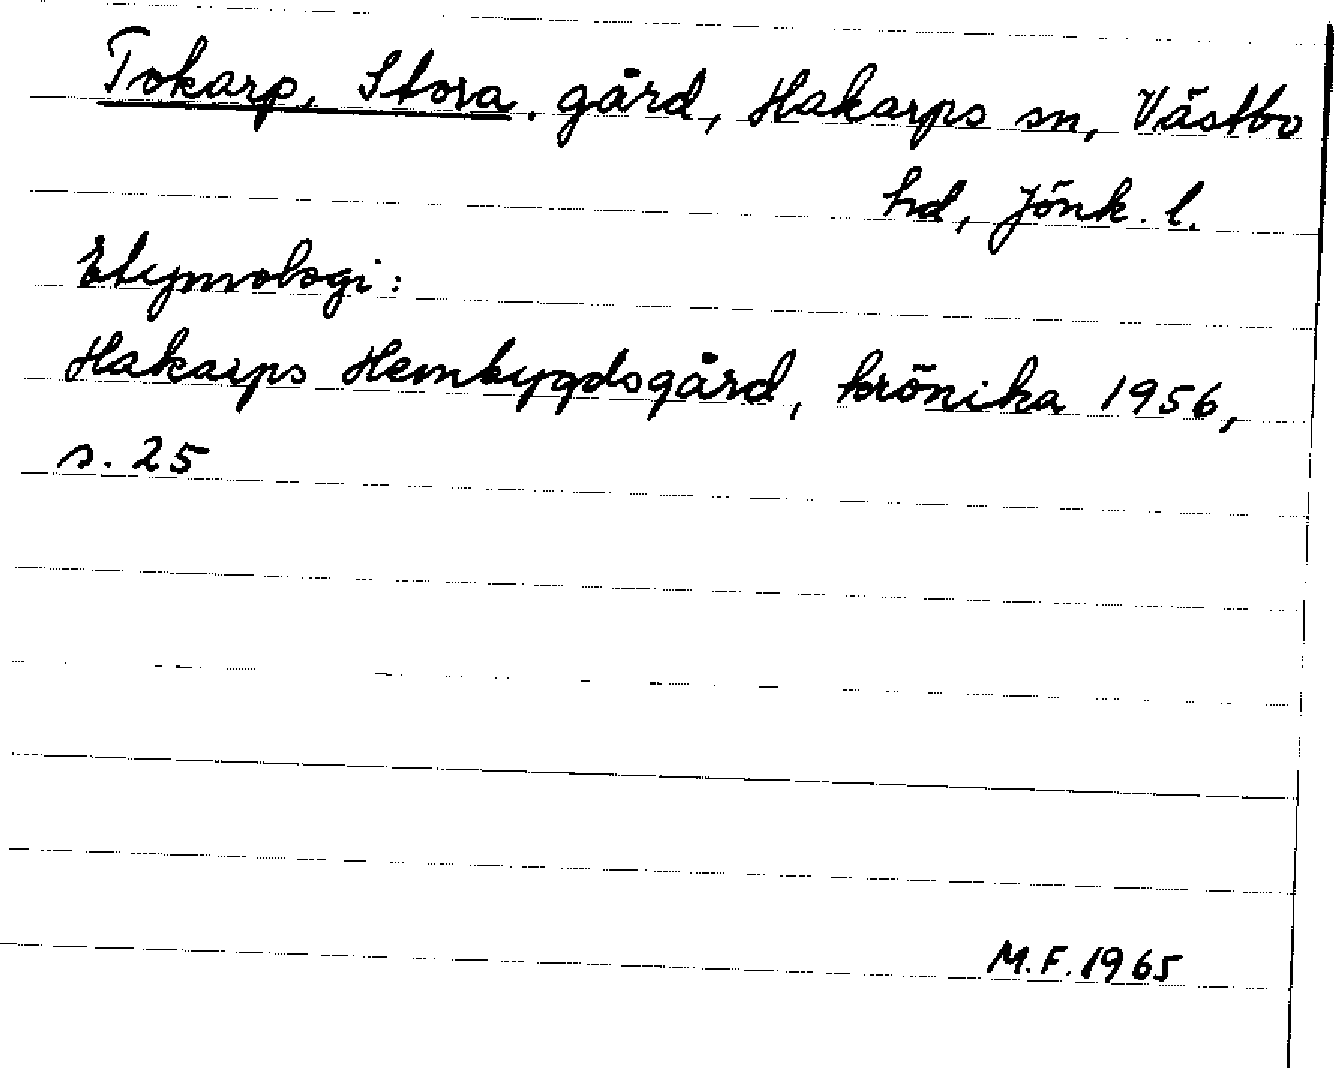 Tokarp, Stora. gård, Hakarps sn, Västbo
hd, Jönk. l.
Etymologi:
Hakarps Hembygdsgård, krönika 1956,
s. 25
M.F. 1965